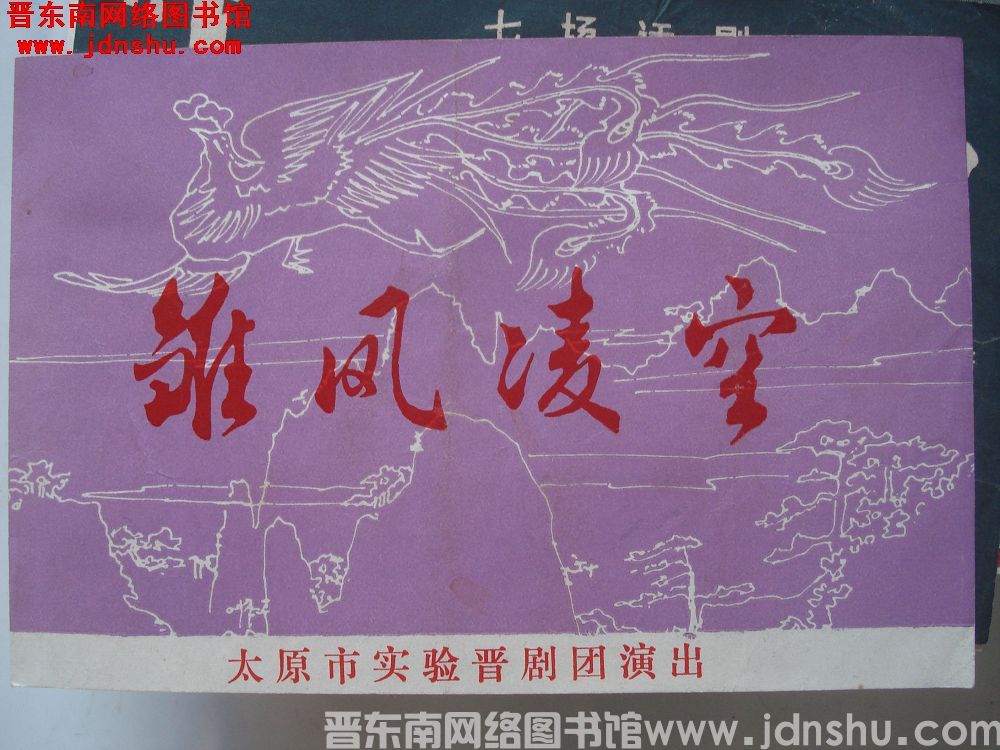 晋东南网络图书馆
www.jdnshu.com
七场话剧
雏凤凌空
太原市实验晋剧团演出
晋东南网络图书馆www.jdnshu.com